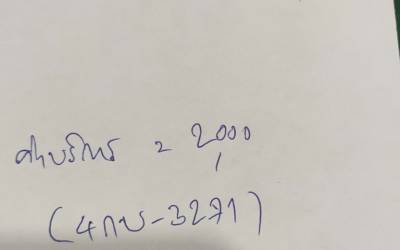 ค่าบริการ = 2,000
(4กบ-3271)